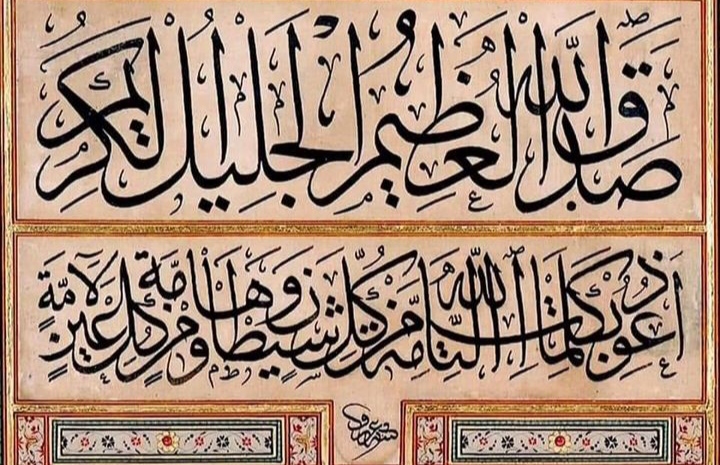 صَدَقَ اللهُ الْعَظِيمُ الْجَلِيلُ الْكَرِيمُ
أَعُوذُ بِكَلِمَاتِ اللهِ التَّامَّةِ مِنْ كُلِّ شَيْطَانٍ وَهَامَّةٍ وَمِنْ كُلِّ عَيْنٍ لَامَّةٍ